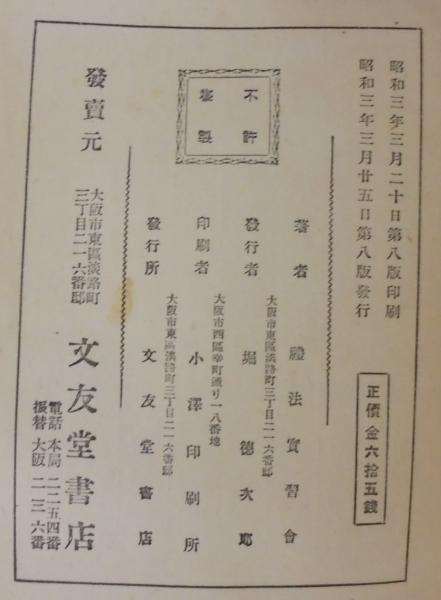 昭和三年三月二十日第八版印刷
昭和三年三月廿五日第八版發行
正價金六拾五錢
不許
複製
著者 禮法實習會
大阪市東區淡路町三丁目二一六番邸
發行者 堀德次郎
大阪市西區幸町通リ一八番地
印刷者 小澤印刷所
大阪市東區淡路町三丁目二一六番邸
發行所 文友堂書店
發賣元
大阪市東區淡路町
三丁目二一六番邸
文友堂書店
電話本局二二五四番
振替大阪二三六番